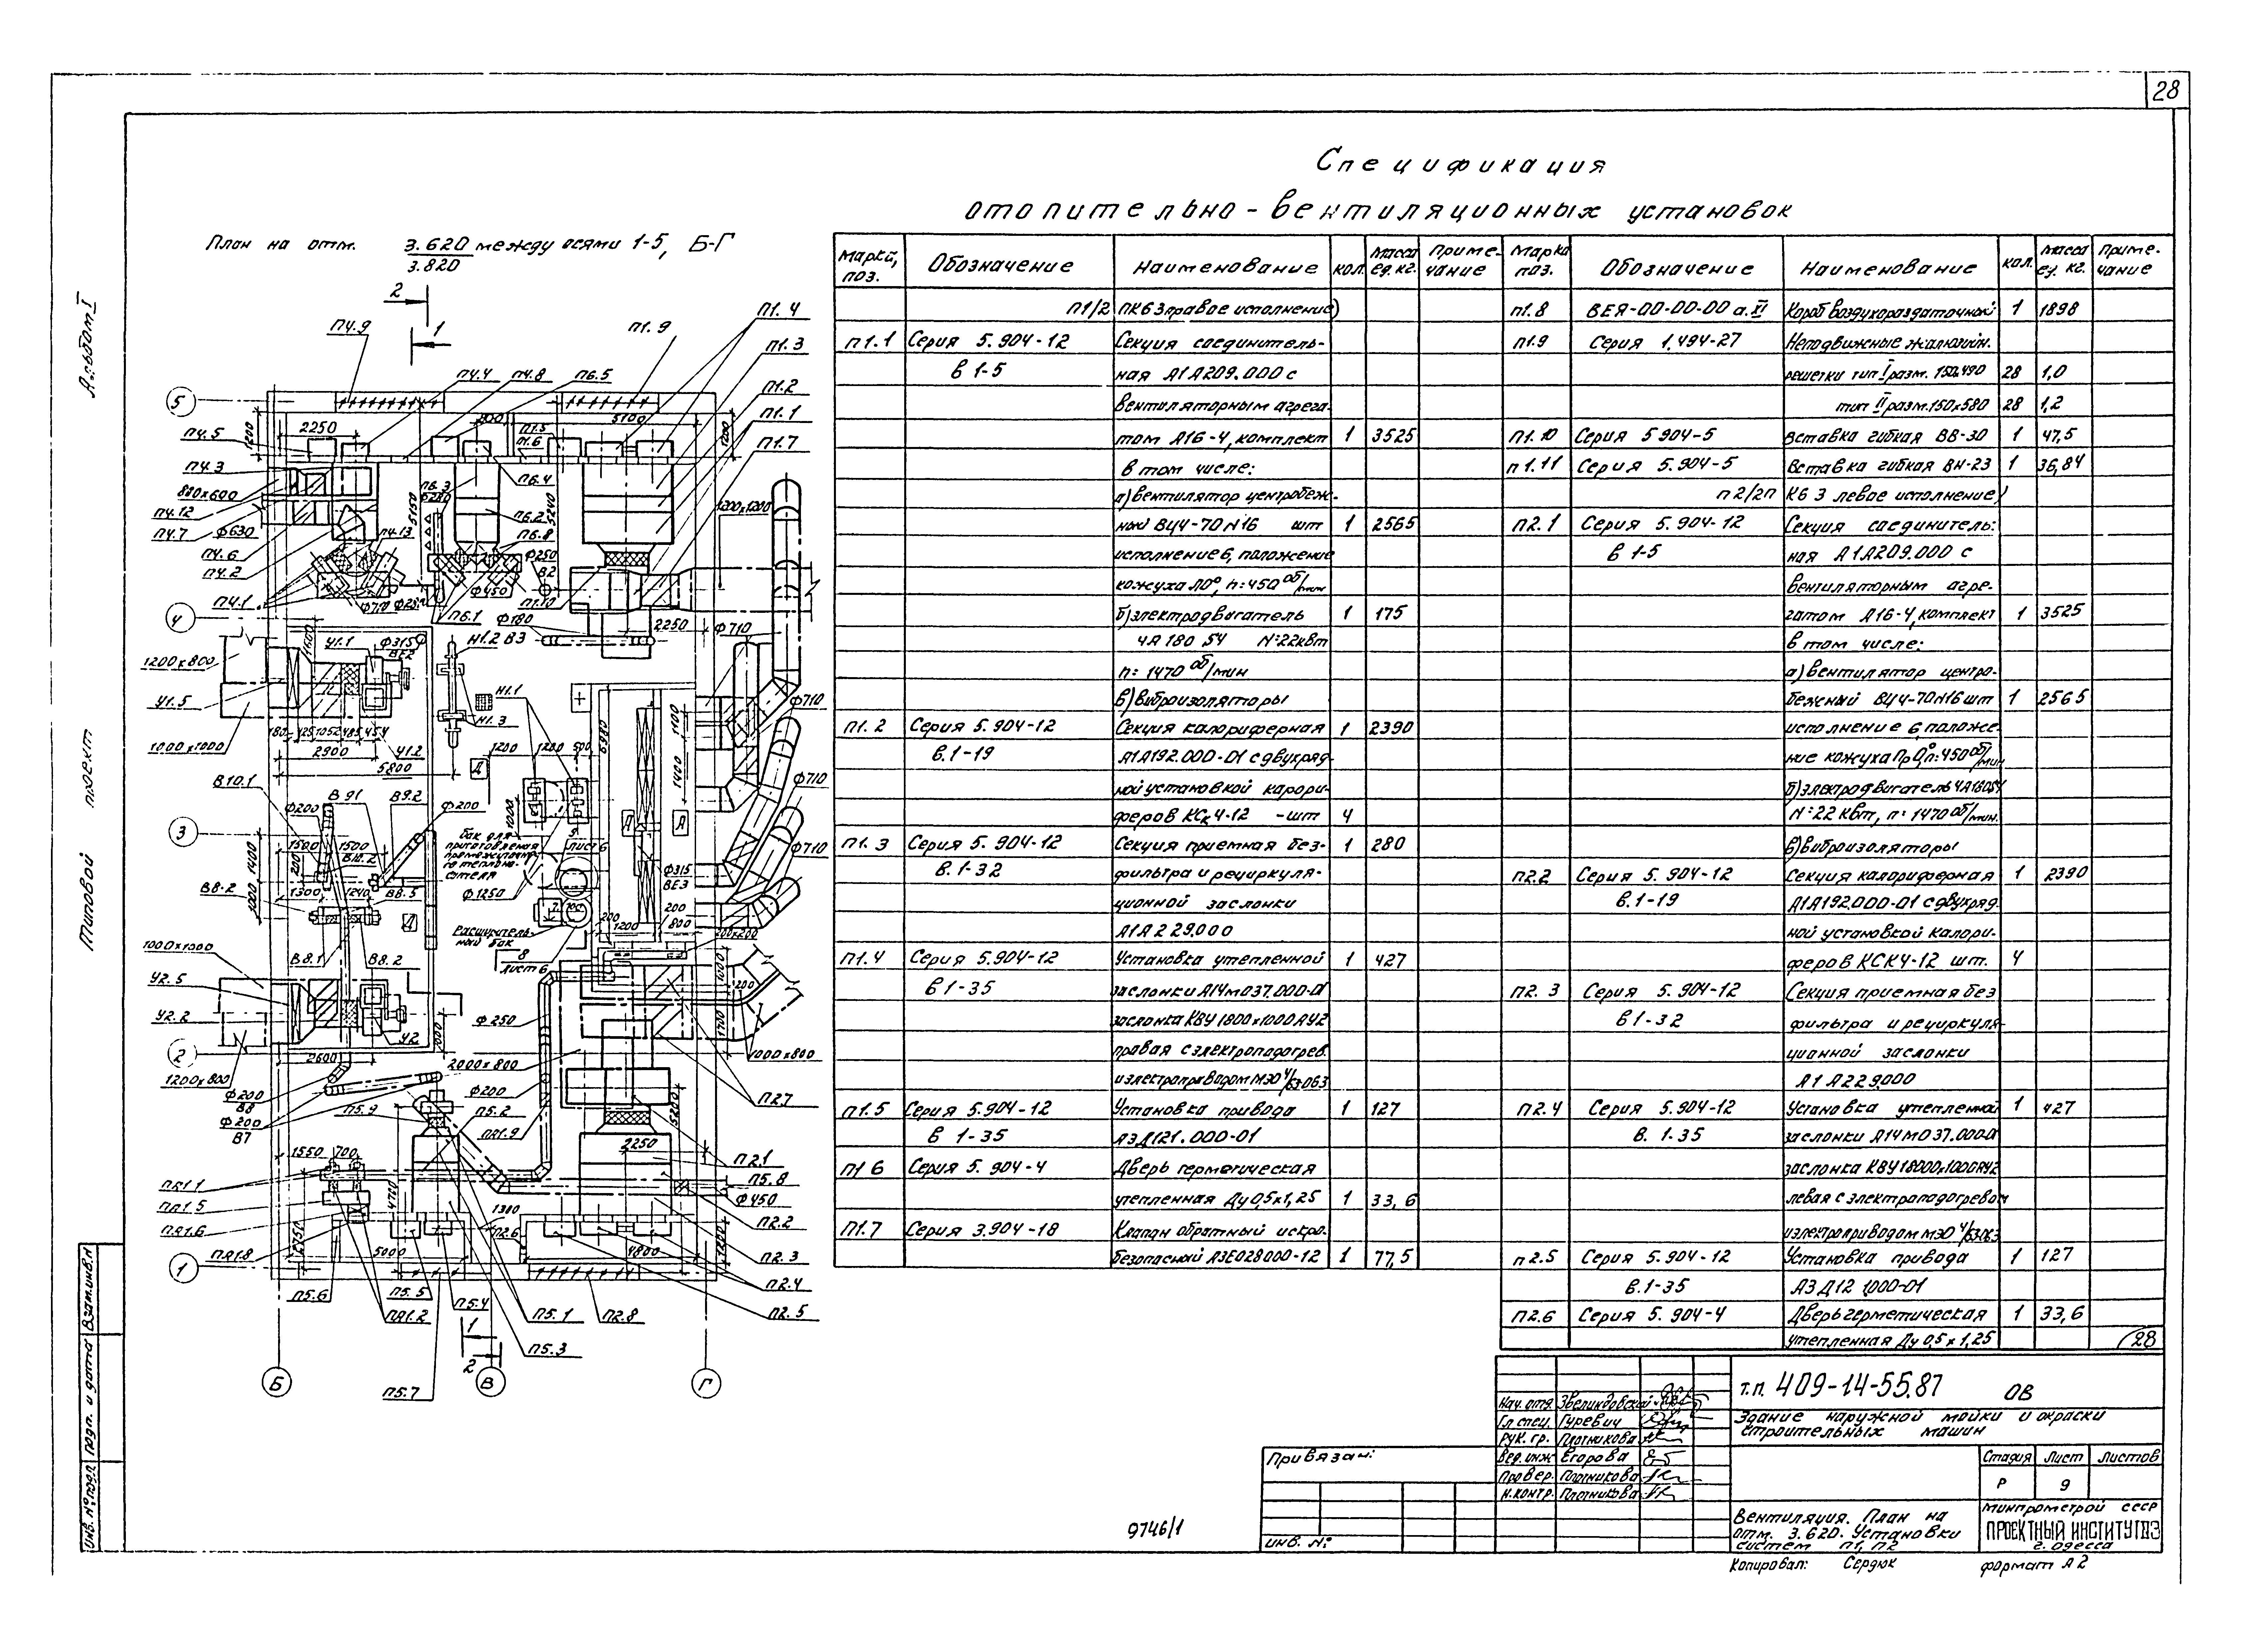 28
Спецификация
отопительно-вентиляционных установок
План на отм. 3.620 между осями 1-5, Б-Г
3.820
Альбом I
Типовой проект
Марка, поз. Обозначение Наименование Кол. Масса ед. кг. Примечание
П1/2ПК63 правое исполнение)
П1.1 Серия 5.904-12 Секция соединитель-
в 1-5 ная А1А209.000 с
вентиляторным агрега-
том А16-4, комплект 1 3525
в том числе:
а) вентилятор центробеж-
ный ВЦ4-70 N16 шт 1 2565
исполнение 6, положение
кожуха Л0°, n=450 об/мин
б) электродвигатель 1 175
4А 180 S4 N=22квт
n= 1470 об/мин
в) виброизоляторы
П1.2 Серия 5.904-12 Секция калориферная 1 2390
в.1-19 А1А192.000-01 с двухряд-
ной установкой калори-
феров КСк4-12 -шт 4
П1.3 Серия 5.904-12 Секция приемная без- 1 280
в.1-32 фильтра и рециркуля-
ционной заслонки
А1А229.000
П1.4 Серия 5.904-12 Установка утепленной 1 427
в 1-35 заслонки А14М037.000-01
заслонка КВУ 1800х1000АУ2
правая с электроподогрев.
и электроприводом МЭО 4/63-063
П1.5 Серия 5.904-12 Установка привода 1 127
в 1-35 А3Д121.000-01
П1 6 Серия 5.904-4 Дверь герметическая
утепленная Ду 0,5х1,25 1 33,6
П1.7 Серия 3.904-18 Клапан обратный искро-
безопасный А3Е028000-12 1 77,5
Марка поз. Обозначение Наименование кол. Масса ед. кг. Приме-чание
П1.8 ВЕЯ-00-00-00 а.VI Короб воздухораздаточный 1 1898
П1.9 Серия 1.494-27 Неподвижные жалюзийн.
решетки тип I разм. 150х490 28 1,0
тип II разм.150х580 28 1,2
П1.10 Серия 5.904-5 Вставка гибкая ВВ-30 1 47,5
П1.11 Серия 5.904-5 Вставка гибкая ВН-23 1 36,84
П2/2ПК63 левое исполнение)
П2.1 Серия 5.904-12 Секция соединитель-
в 1-5 ная А1А209.000 с
вентиляторным агре-
гатом А16-4, комплект 1 3525
в том числе:
а) вентилятор центро-
бежный ВЦ4-70 N16 шт 1 2565
исполнение 6 положе-
ние кожуха Пр0°, n=450 об/мин
б) электродвигатель 4А180S4
N=22 квт, n=1470 об/мин.
в) виброизоляторы
П2.2 Серия 5.904-12 Секция калориферная 1 2390
в.1-19 А1А192.000-01 с двухряд.
ной установкой калори-
феров КСК4-12 шт. 4
П2.3 Серия 5.904-12 Секция приемная без
в 1-32 фильтра и рециркуля-
ционной заслонки
А1А229.000
П2.4 Серия 5.904-12 Установка утепленной 1 427
в. 1-35 заслонки А14М037.000-01
заслонка КВУ18000х1000АУ2
левая с электроподогревом
и электроприводом МЭО 4/63-063
П2.5 Серия 5.904-12 Установка привода 1 127
в.1-35 А3Д12 1000-01
П2.6 Серия 5.904-4 Дверь герметическая 1 33,6
утепленная Ду 0,5х1,25
28
2
1
П4.9
П1.9
П1.4
П1.3
П1.2
П1.1
П1.7
П4.4
П4.8
П6.5
5
П4.5
2250
800
5100
1200
П1.5
П1.6
П4.3
800х600
П4.12
П4.7
Ф630
П4.6
П4.2
П4.1
П4.13
П6.3
П6.4
П6.2
П6.8
Ф250
В2
5150
5240
1200х1200
Ф450
П1.10
П6.1
Ф180
Ф710
2250
4
1200х800
У1.1
Ф315
ВЕ2
Н1.2
В3
Н1.1
Н1.3
У1.5
1000х1000
2900
У1.2
5800
1200
1200
500
1100
1400
Ф710
В10.1
Ф200
В9.1
В9.2
Ф200
3
1500
1500
В10.2
1400
1000
1300
1240
В8.2
В8.5
бак для
приготовления
промежуточно-
го теплоно-
сителя
Ф1250
лист 6
Ф315
ВЕ3
Расширитель-
ный бак
8
лист 6
1000х1000
В8.1
В8.2
У2.5
У2.2
У2
2
2600
1200х800
Ф250
2000х800
1000х800
Ф200
В8
Ф200
В7
П5.9
П5.2
ПА1.9
П2.7
2250
П2.1
П5.8
Ф450
1550
700
ПА1.1
ПА1.5
ПА1.6
ПА1.8
1
4720
1380
П2.6
П2.2
П2.3
П2.4
П2.5
5000
4800
1200
П5.6
П5.5
П5.4
ПА1.2
П5.1
П2.8
П5.3
1
2
П5.7
Б
В
Г
Инв. № подл. Подп. и дата Взам. инв. N
Привязан:
инв. №
9746/1
Нач. отд. Звелиндовский
Гл. спец. Гуревич
Рук. гр. Плотникова
Вед. инж Егорова
Провер. Плотникова
Н.контр. Плотникова
Т.П. 409-14-55.87 ОВ
Здание наружной мойки и окраски
строительных машин
Стадия Лист Листов
Р 9
Вентиляция. План на
отм. 3.620. Установки
систем П1, П2
Минпромстрой СССР
ПРОЕКТНЫЙ ИНСТИТУТ №3
г. Одесса
Копировал: Сердюк
формат А2